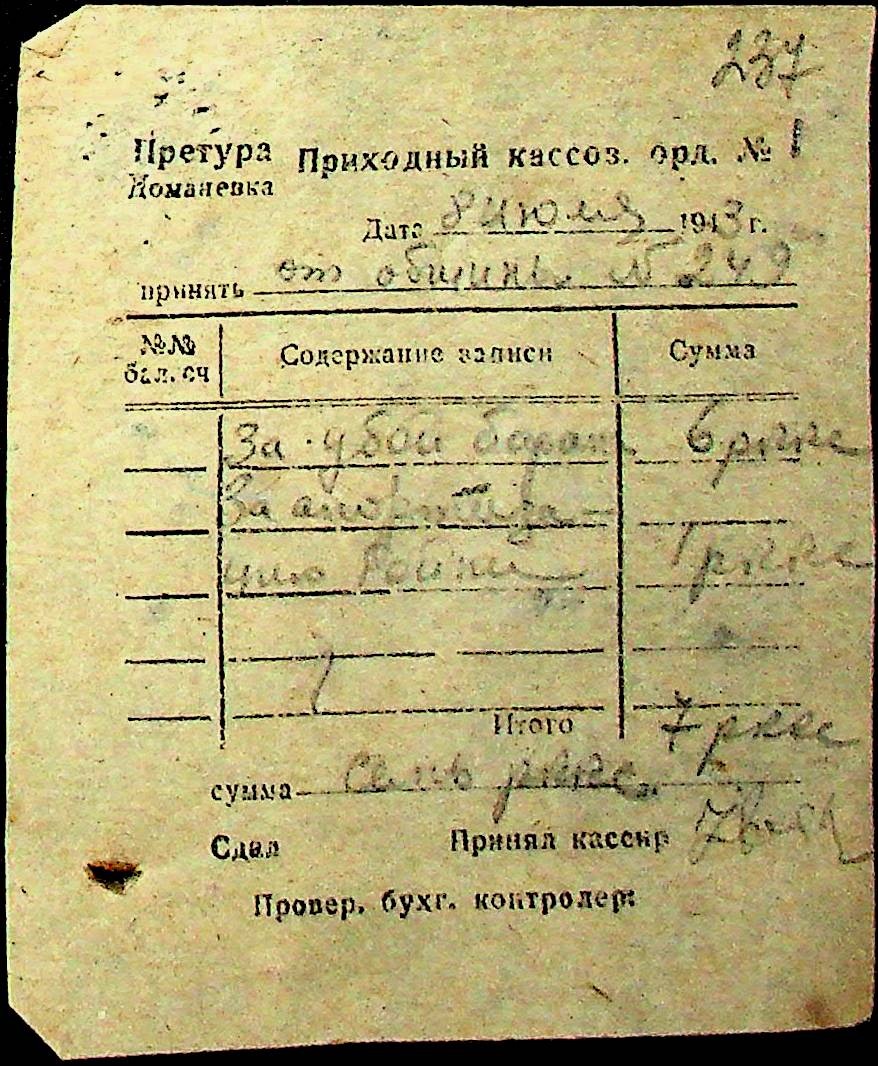 237
Претура Приходный кассов. орд. № 1
Доманевка
Дата 8 июля 1943 г.
принять от общины № 249
№№ бал. сч Содержание записи Сумма
За убой 6 ркке
За амортиза-
цию бойни 1 ркке
Итого 7 ркке
сумма Семь ркке.
Сдал Принял кассир
Провер. бухг. контролер: